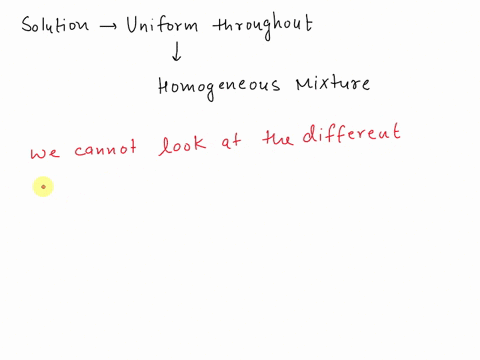 Solution → Uniform throughout
↓
Homogeneous Mixture
we cannot look at the different